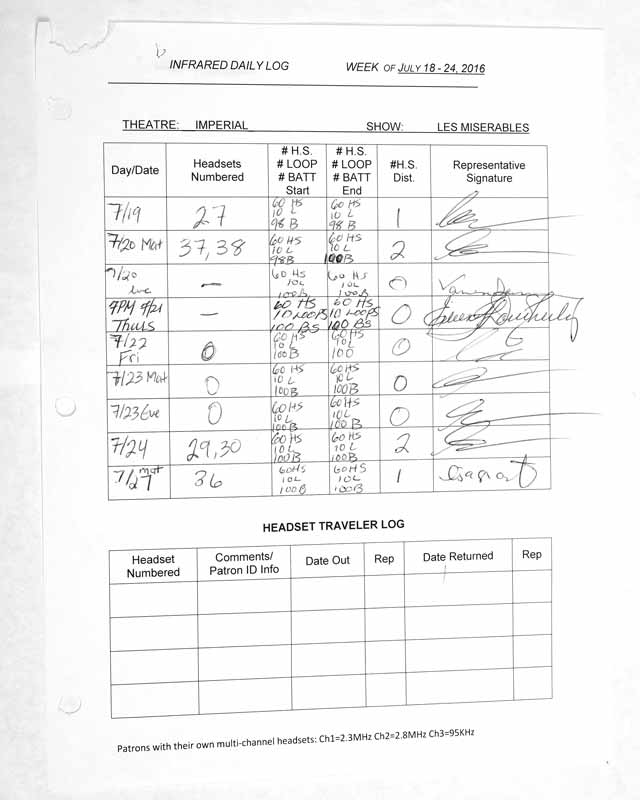 INFRARED DAILY LOG WEEK OF JULY 18 - 24, 2016
THEATRE: IMPERIAL SHOW: LES MISERABLES
Day/Date
Headsets
Numbered
# H.S.
# LOOP
# BATT
Start
# H.S.
# LOOP
# BATT
End
#H.S.
Dist.
Representative
Signature
7/19
27
60 HS
10 L
98 B
60 HS
10 L
98 B
1
7/20 Mat
37, 38
60 HS
10 L
98B
60 HS
10 L
100B
2
7/20
eve
—
60 HS
10L
100B
60 HS
10L
100B
0
Thurs
—
60 HS
10 LOOPS
100 BS
60 HS
10 LOOPS
100 BS
0
7/22
Fri
0
60 HS
10 L
100B
60 HS
10 L
100
0
7/23 Mat
0
60 HS
10 L
100B
60 HS
10 L
100B
0
7/23 Eve
0
60 HS
10 L
100B
60HS
10L
100B
0
7/24
29,30
60 HS
10 L
100B
60HS
10L
100B
2
7/27 mat
36
60HS
10L
100B
60HS
10L
100B
1
HEADSET TRAVELER LOG
Headset
Numbered
Comments/
Patron ID Info
Date Out
Rep
Date Returned
Rep
Patrons with their own multi-channel headsets: Ch1=2.3MHz Ch2=2.8MHz Ch3=95KHz